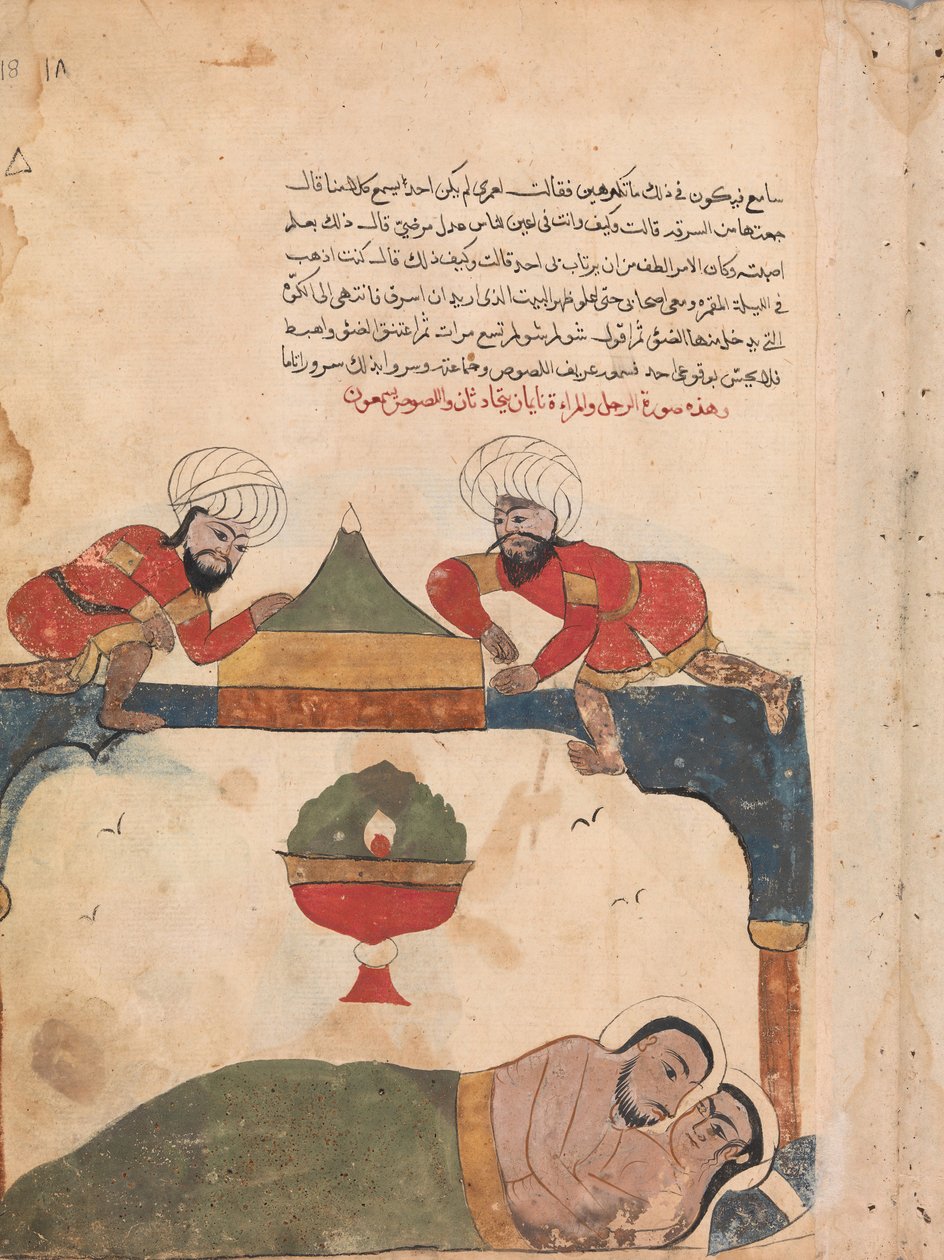 18 ١٨
سامع فيكون في ذلك ما تكرهين فقالت لعمري لم يكن احد يسمع كلامنا قال
جمعتها من السرقه قالت وكيف وانت في اعين الناس عدل مرضي قال ذلك بعلم
اصبته وكان الامر الطف من ان يرتاب بي احد قالت وكيف ذلك قال كنت اذهب
في الليلة المقمره ومعي اصحابي حتى اعلو ظهر البيت الذي اريد ان اسرق فانتهي الى الكوّة
التي يدخل منها الضوّ ثم اقول شولم شولم تسع مرات ثم اعتنق الضوّ واهبط
فلا يحسّ بوقوعي احد فسمور عريف اللصوص وجماعته وسروا بذلك سرورا تاما
وهذه صورة الرجل والمراءة نايمان يتحادثان واللصوص يسمعون